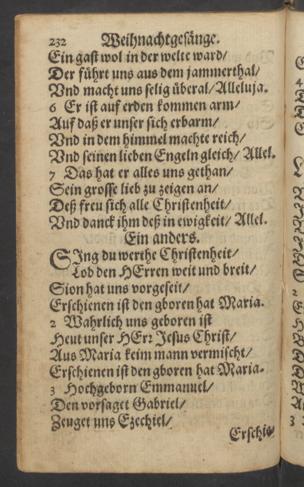 232 Weihnachtgesänge.
Ein gast wol in der welte ward/
Der führt uns aus dem jammerthal/
Vnd macht uns selig überal/ Alleluja.
6 Er ist auf erden kommen arm/
Auf daß er unser sich erbarm/
Vnd in dem himmel machte reich/
Vnd seinen lieben Engeln gleich/ Allel.
7 Das hat er alles uns gethan/
Sein grosse lieb zu zeigen an/
Deß freu sich alle Christenheit/
Vnd danck ihm deß in ewigkeit/ Allel.
Ein anders.
SIng du werthe Christenheit/
Lob den HErren weit und breit/
Sion hat uns vorgeseit/
Erschienen ist den gboren hat Maria.
2 Wahrlich uns geboren ist
Heut unser HErr Jesus Christ/
Aus Maria keim mann vermischt/
Erschienen ist den gboren hat Maria.
3 Hochgeborn Emmanuel/
Den vorsaget Gabriel/
Zeuget uns Ezechiel/
Erschie-